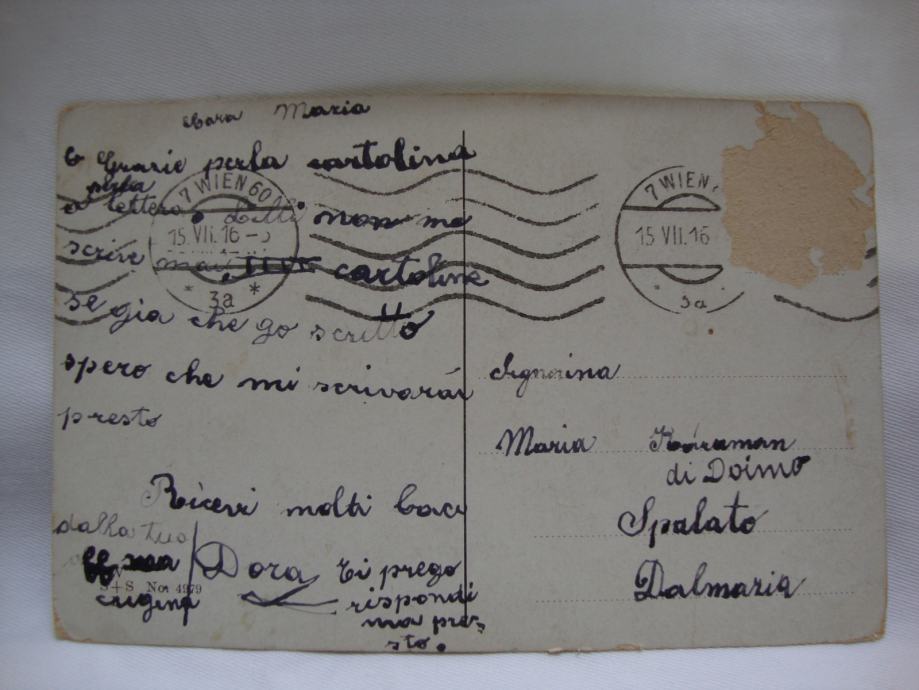 Cara Maria
Grazie perla cartolina
perla
lettera non me
scrive mai cartoline
se gia che go scritto
spero che mi scrivarai
presto
Ricevi molti baci
dalla tua
Dora ti prego
cugina rispondi
ma pres-
sto.
S+S No. 4979
7 WIEN 60
15.VII.16-5
* 3a *
7 WIEN
15.VII.16
3a
Signorina
Maria Karaman
di Doimo
Spalato
Dalmazia